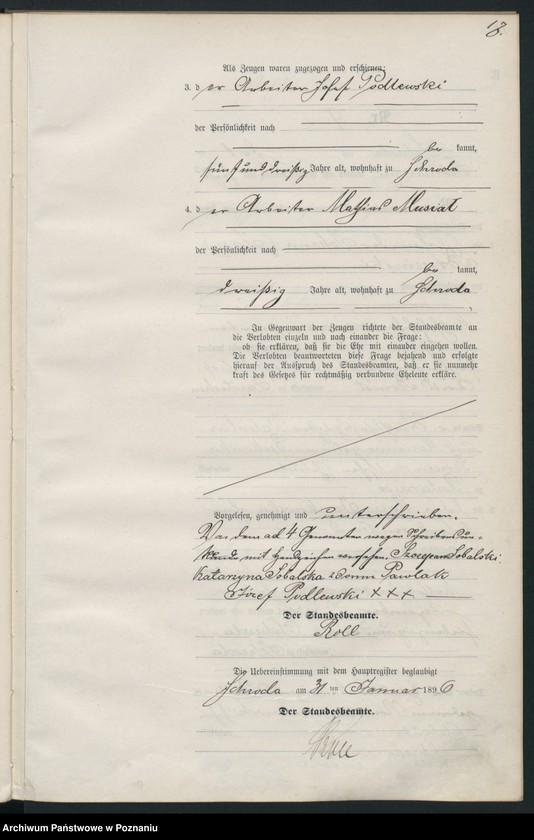 18.
Als Zeugen waren zugezogen und erschienen:
3. d er Arbeiter Josef Podlewski
der Persönlichkeit nach
be kannt,
fünfunddreißig Jahre alt, wohnhaft zu Schroda
4. d er Arbeiter Mathias Musiał
der Persönlichkeit nach
be kannt,
dreißig Jahre alt, wohnhaft zu Schroda
In Gegenwart der Zeugen richtete der Standesbeamte an
die Verlobten einzeln und nach einander die Frage:
ob sie erklären, daß sie die Ehe mit einander eingehen wollen.
Die Verlobten beantworteten diese Frage bejahend und erfolgte
hierauf der Ausspruch des Standesbeamten, daß er sie nunmehr
kraft des Gesetzes für rechtmäßig verbundene Eheleute erkläre.
Vorgelesen, genehmigt und unterschrieben.
Von dem ad 4 Genannten wegen Schreibensun-
kunde mit Handzeichen versehen. Szczepan Sobalski
Katarzyna Sobalska Pawlak
Józef Podlewski + + +
Der Standesbeamte.
Roll
Die Uebereinstimmung mit dem Hauptregister beglaubigt
Schroda am 31 ten Januar 1896
Der Standesbeamte.
Archiwum Państwowe w Poznaniu